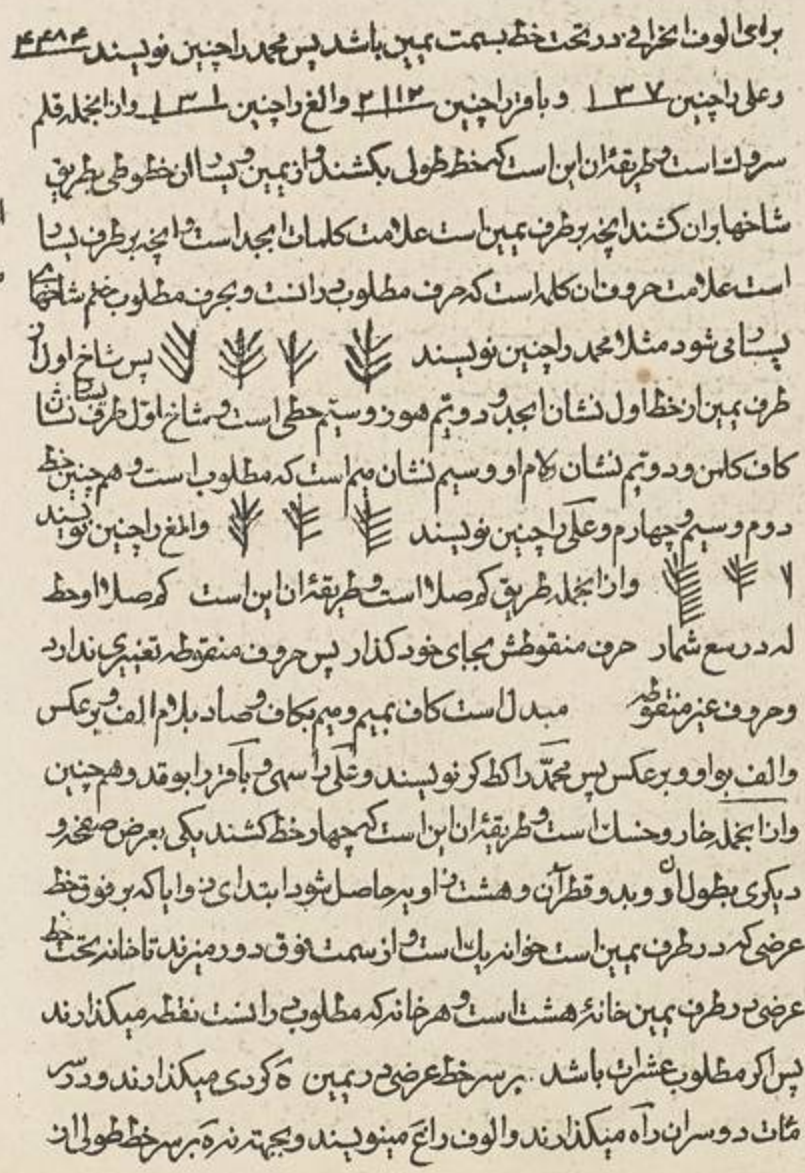 برای الوف انحرافی در تحت خط بسمت یمین باشد پس محمد را چنین نویسند ۴۴۸۴
و علی را چنین ۱۳۷ و باقر را چنین ۲۱۱۲ و الغ را چنین ۱۳۱ و از انجمله قلم
سرو است و طریقهٔ ان این است که خط طولی بکشند و از یمین و یسار ان خطوطی بطریق
شاخها بران کشند انچه بر طرف یمین است علامت کلمات ابجد است و انچه بر طرف یسار
است علامت حروف ان کلمه است که حرف مطلوب در انست و بحرف مطلوب ختم شاخهای
یسار می شود مثلا محمد را چنین نویسند پس شاخ اول از
طرف یمین از خط اول نشان ابجد و دویم هوز و سیم حطی است و شاخ اول طرف یسار نشان
کاف کلمن و دویم نشان لام او و سیم نشان میم است که مطلوب است و هم چنین خط
دوم و سیم و چهارم و علی را چنین نویسند و الغ را چنین نویسند
و از انجمله طریق کم صلا است و طریقهٔ ان این است کم صلا او حط
له در سع شمار حرف منقوطش بجای خود کذار پس حروف منقوطه تغییری ندارد
و حروف غیر منقوطه مبدل است کاف بمیم و میم بکاف و صاد بلام الف و بر عکس
و الف بواو و بر عکس پس محمد را کطکر نویسند و علی را سهی و باقر را بوقد و هم چنین
و از انجمله خار و خسک است و طریقهٔ ان این است که چهار خط کشند یکی بعرض صفحه و
دیکری بطول او و بدو قطر آن و هشت زاویه حاصل شود ابتدای زوایا که بر فوق خط
عرضی که در طرف یمین است خوانه یک است و از سمت فوق دور میزند تا خانه تحت خط
عرضی در طرف یمین خانهٔ هشت است و هر خانه که مطلوب در انست نقطه میکذارند
پس اکر مطلوب عشرات باشد بر سر خط عرضی در یمین ه کردی میکذارند و در
مئات دو سر ان را ه میکذارند و الوف را غ مینویسند و بجهته نه بر سر خط طولی از